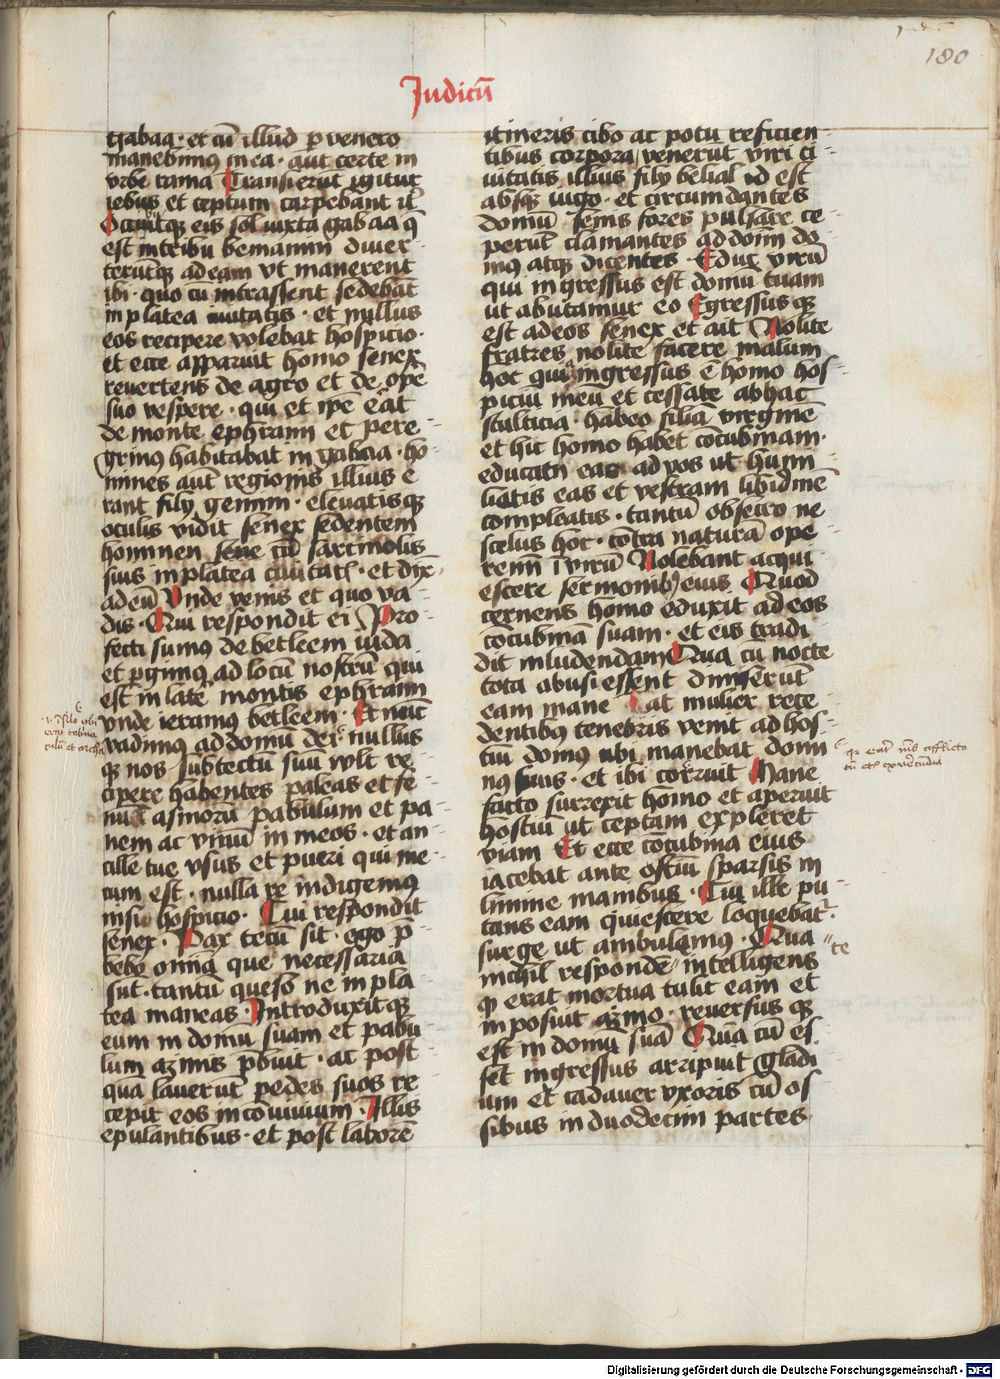 180
Judicū
gabaa · et cū illud ꝑ venero
manebimus in ea · aut certe in
vrbe rama Transierūt igitur
iebus et ceptum carpebant it̄
Occubuitqȝ eis sol iuxta gabaa q̄
est in tribu beniamin diuer
terūtqȝ ad eam vt manerent
ibi · quo cū intrassent sedebāt
in platea ciuitatis · et nullus
eos recipere volebat hospicio ·
et ecce apparuit homo senex
reuertens de agro et de oꝑe
suo vespere · qui et ip̄e erat
de monte ephraim et pere
grinus habitabat in gabaa · ho
mines aut̄ regionis illius e
rant filij gemini · eleuatisqȝ
oculis vidit senex sedentem
hominen sene cū sarcinolis
suis in platea ciuitatꝭ · et dix̄
ad eū Vnde venis et quo va
dis · Qui respondit ei Pro
fecti sumus de betleem iuda
et ꝑgimus ad locū nostrū qui
est in late montis ephraim
vnde ieramus betleem · Et nūc
vadimus ad domū dei · nullus
qȝ nos subtectu suū wlt re
cipere habentes paleas et fe
nū ī asinorū pabulum et pa
nem ac vinū in meos · et an
cille tue vsus et pueri qui me
cum est · nulla re indigemus
nisi hospicio · Cui respondit
senex · Pax tecū sit · ego p̄
bebo omīa que necessaria
sūt · tantū queso ne in pla
tea maneas · Introduxitqȝ
eum in domū suam et pabu
lum asinis p̄buit · ac post
quā lauerūt pedes suos re
cepit eos in conuiuium · Illis
epulantibus · et post laborē
itineris cibo ac potu reficien
tibus corpora venerūt viri ci
uitatis illius filij belial id est
absqȝ iugo · et circumdantes
domū senis fores pulsare ce
perūt clamantes ad dom̄ do
mus atqȝ dicentes · Educ virū
qui ingressus est domū tuam
ut abutamur eo Egressusqȝ
est ad eos senex et ait Nolite
fratres nolite facere malum
hoc quia ingressus ē homo hos
piciū meū et cessate ab hac
stulticia · habeo filiā virginē
et hic homo habet cōcubinam ·
educam eas ad vos ut humi
lietis eas et vestram libidinē
compleatis · tantū obsecro ne
scelus hoc · contra naturā ope
remī ī virū Nolebant acqui
escere sermonibȝ eius Quod
cernens homo eduxit ad eos
cōcubinā suam · et eis tradi
dit inludendam Qua cū nocte
tota abusi essent dimiserūt
eam mane at mulier rece
dentibus tenebris venit ad hos
tiū domus ubi manebat domi
nus suus · et ibi corruit Mane
facto surrexit homo et aperuit
hostiū ut ceptam expleret
viam Et ecce cōcubina eius
iacebat ante ostiū sparsis in
limine manibus · Cui ille pu
tans eam quiescere loquebat̄ ·
surge ut ambulamus · Qua
nichil respondē te intelligens
qȝ erat mortua tulit eam et
inposuit asino · reuersusqȝ
est in domū suā Quā cū es
set ingressus arripuit gladi
um et cadauer vxoris cū os
sibus in duodecim partes